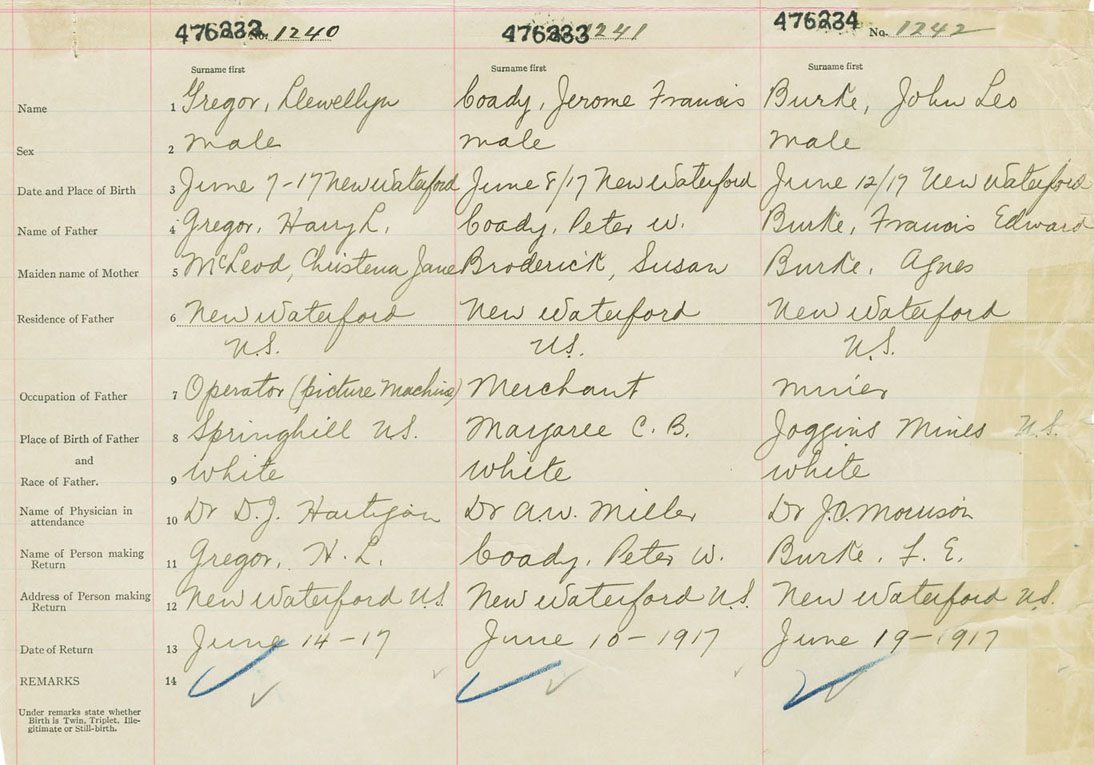 476232 No. 1240 476233 1241 476234 No. 1242
Surname first Surname first Surname first
Name 1 Gregor, Llewellyn Coady, Jerome Francis Burke, John Leo
Sex 2 male male male
Date and Place of Birth 3 June 7-17 New Waterford June 8/17 New Waterford June 12/17 New Waterford
Name of Father 4 Gregor, Harry L. Coady, Peter W. Burke, Francis Edward
Maiden name of Mother 5 McLeod, Christena Jane Broderick, Susan Burke, Agnes
Residence of Father 6 New Waterford New Waterford New Waterford
N.S. N.S. N.S.
Occupation of Father 7 Operator (picture Machine) Merchant miner
Place of Birth of Father 8 Springhill N.S. Margaree C. B. Joggins Mines N.S.
and
Race of Father. 9 white white white
Name of Physician in
attendance 10 Dr D.J. Hartigan Dr A.W. Miller Dr J.C. Morrison
Name of Person making
Return 11 Gregor, H. L. Coady, Peter W. Burke, F. E.
Address of Person making
Return 12 New Waterford N.S. New Waterford N.S. New Waterford N.S.
Date of Return 13 June 14-17 June 10-1917 June 19-1917
REMARKS 14
Under remarks state whether
Birth is Twin, Triplet, Ille-
gitimate or Still-birth.